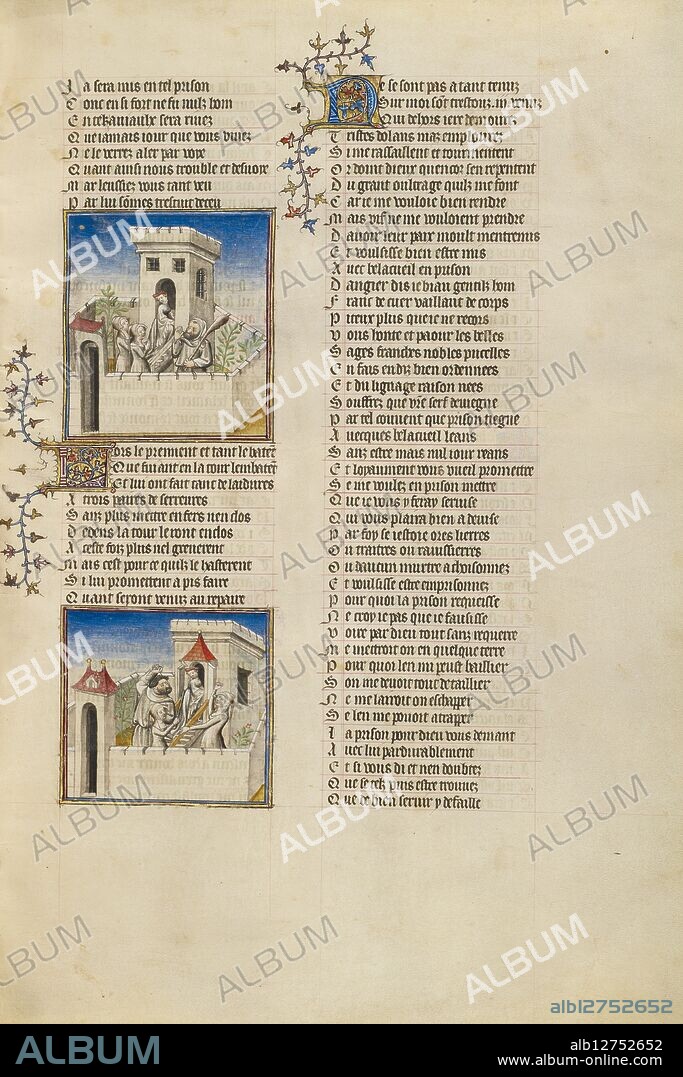 Ja sera mis en tel prison
Conc en si fort ne fu nulz hom
En tel aniaulx sera riuez
Que iamais iour que vous viuez
Ne le verrez aler par voye
Quant ainsi nous trouble et desuoie
Mar leussiez vous tant veu
Par lui sommes trestuit deceu
Lors le prennent et tant le batent
Que fuiant en la tour lembatent
Et lui ont fait tant de laidures
A trois paires de serreures
Sanz plus mettre en fers nen clos
Dedens la tour le vont enclos
A ceste foiz plus nel greuerent
Mais cest pour ce quilz se hasterent
Si lui promettent a pis faire
Quant seront venuz au repaire
Ne se sont pas a tant tenuz
Sur moi sont trestouz .iii. venuz
Qui dehors iere demourez
Tristes dolans maz emplourez
Si me rassaillent et tourmentent
Or doint dieux quencor sen repentent
Du grant oultrage quilz me font
Car ie me vouloie bien rendre
Mais vif ne me vouloient prendre
Dauoir leur paix moult mentremis
Et voulsisse bien estre mis
Auec belacueil en prison
Dangier dis ie biau gentilz hom
Franc de cuer vaillant de corps
Piteux plus que ie ne recors
Vous honte et paour les belles
Sages franches nobles pucelles
En fais en diz bien ordennees
Et du lignage raison nees
Souffrez que vostre serf deuiegne
Par tel conuent que prison tiegne
Auecques belacueil leans
Sanz estre mais nul iour reans
Et loyaument vous vueil promettre
Se me voulez en prison mettre
Que ie vous y feray seruise
Qui vous plaira bien a deuise
Par foy se iestoie ores lierres
Ou traitres ou rauissierres
Ou daucun murtre achoisonnez
Et voulsisse estre emprisonnez
Pour quoi la prison requeisse
Ne croy ie pas que ie fausisse
Voire par dieu tout sanz requerre
Me mettroit on en quelque terre
Pour quoi len me peust baillier
Son me deuoit tout detaillier
Ne me lairoit on eschapper
Se len me pouoit atrapper
La prison pour dieu vous demant
Auec lui pardurablement
Et si vous di et nen doubtez
Que se telz puis estre trouuez
Que de bien seruir y defaille
alb12752652
ALBUM
alb12752652
www.album-online.com